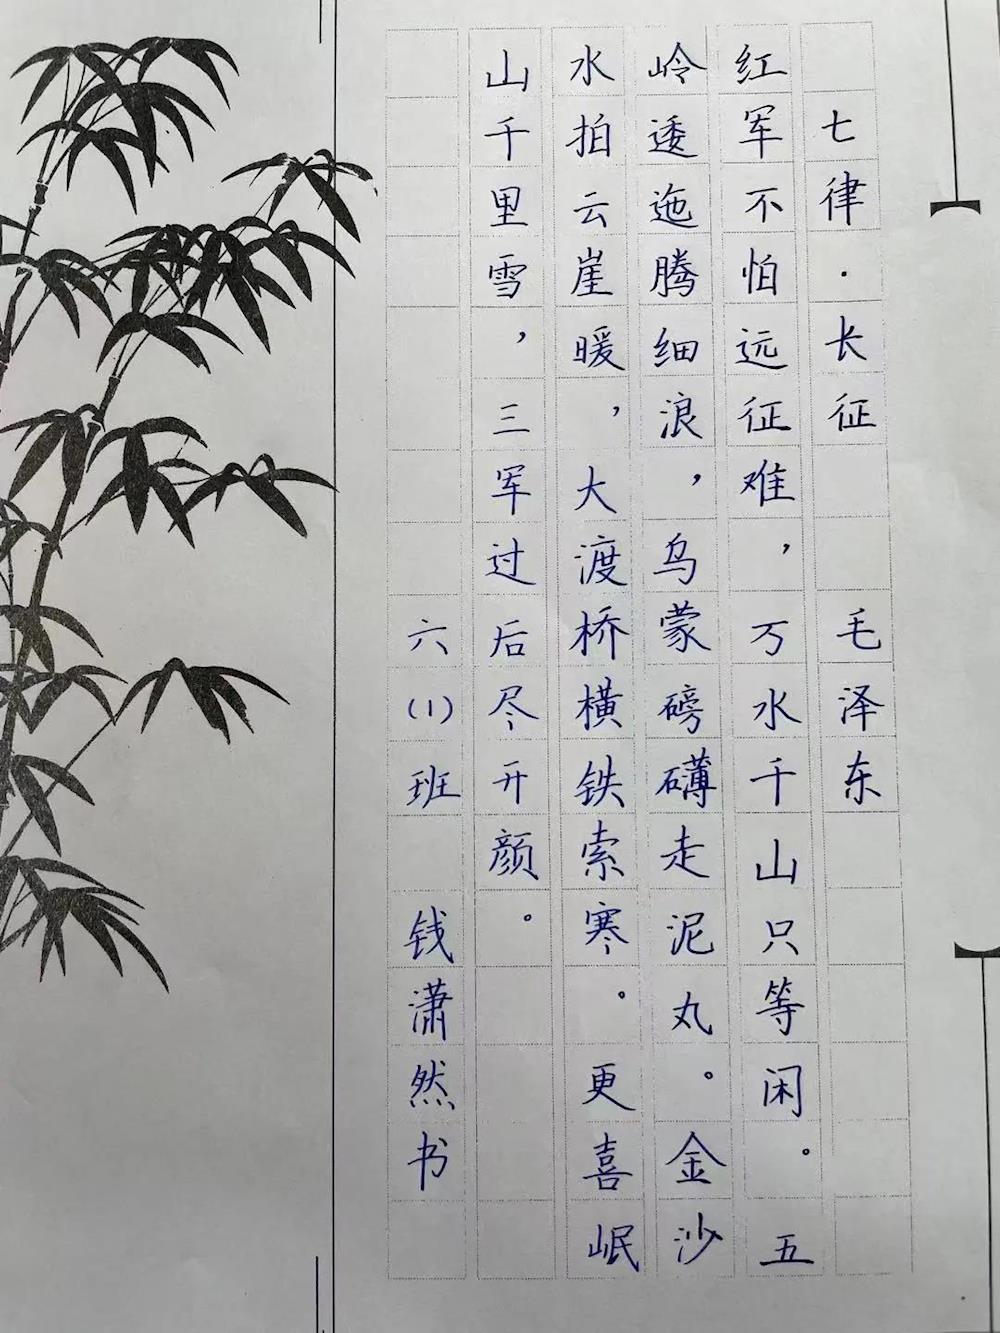 七律·长征 毛泽东
红军不怕远征难，万水千山只等闲。五
岭逶迤腾细浪，乌蒙磅礴走泥丸。金沙
水拍云崖暖，大渡桥横铁索寒。更喜岷
山千里雪，三军过后尽开颜。
六(1)班 钱潇然书